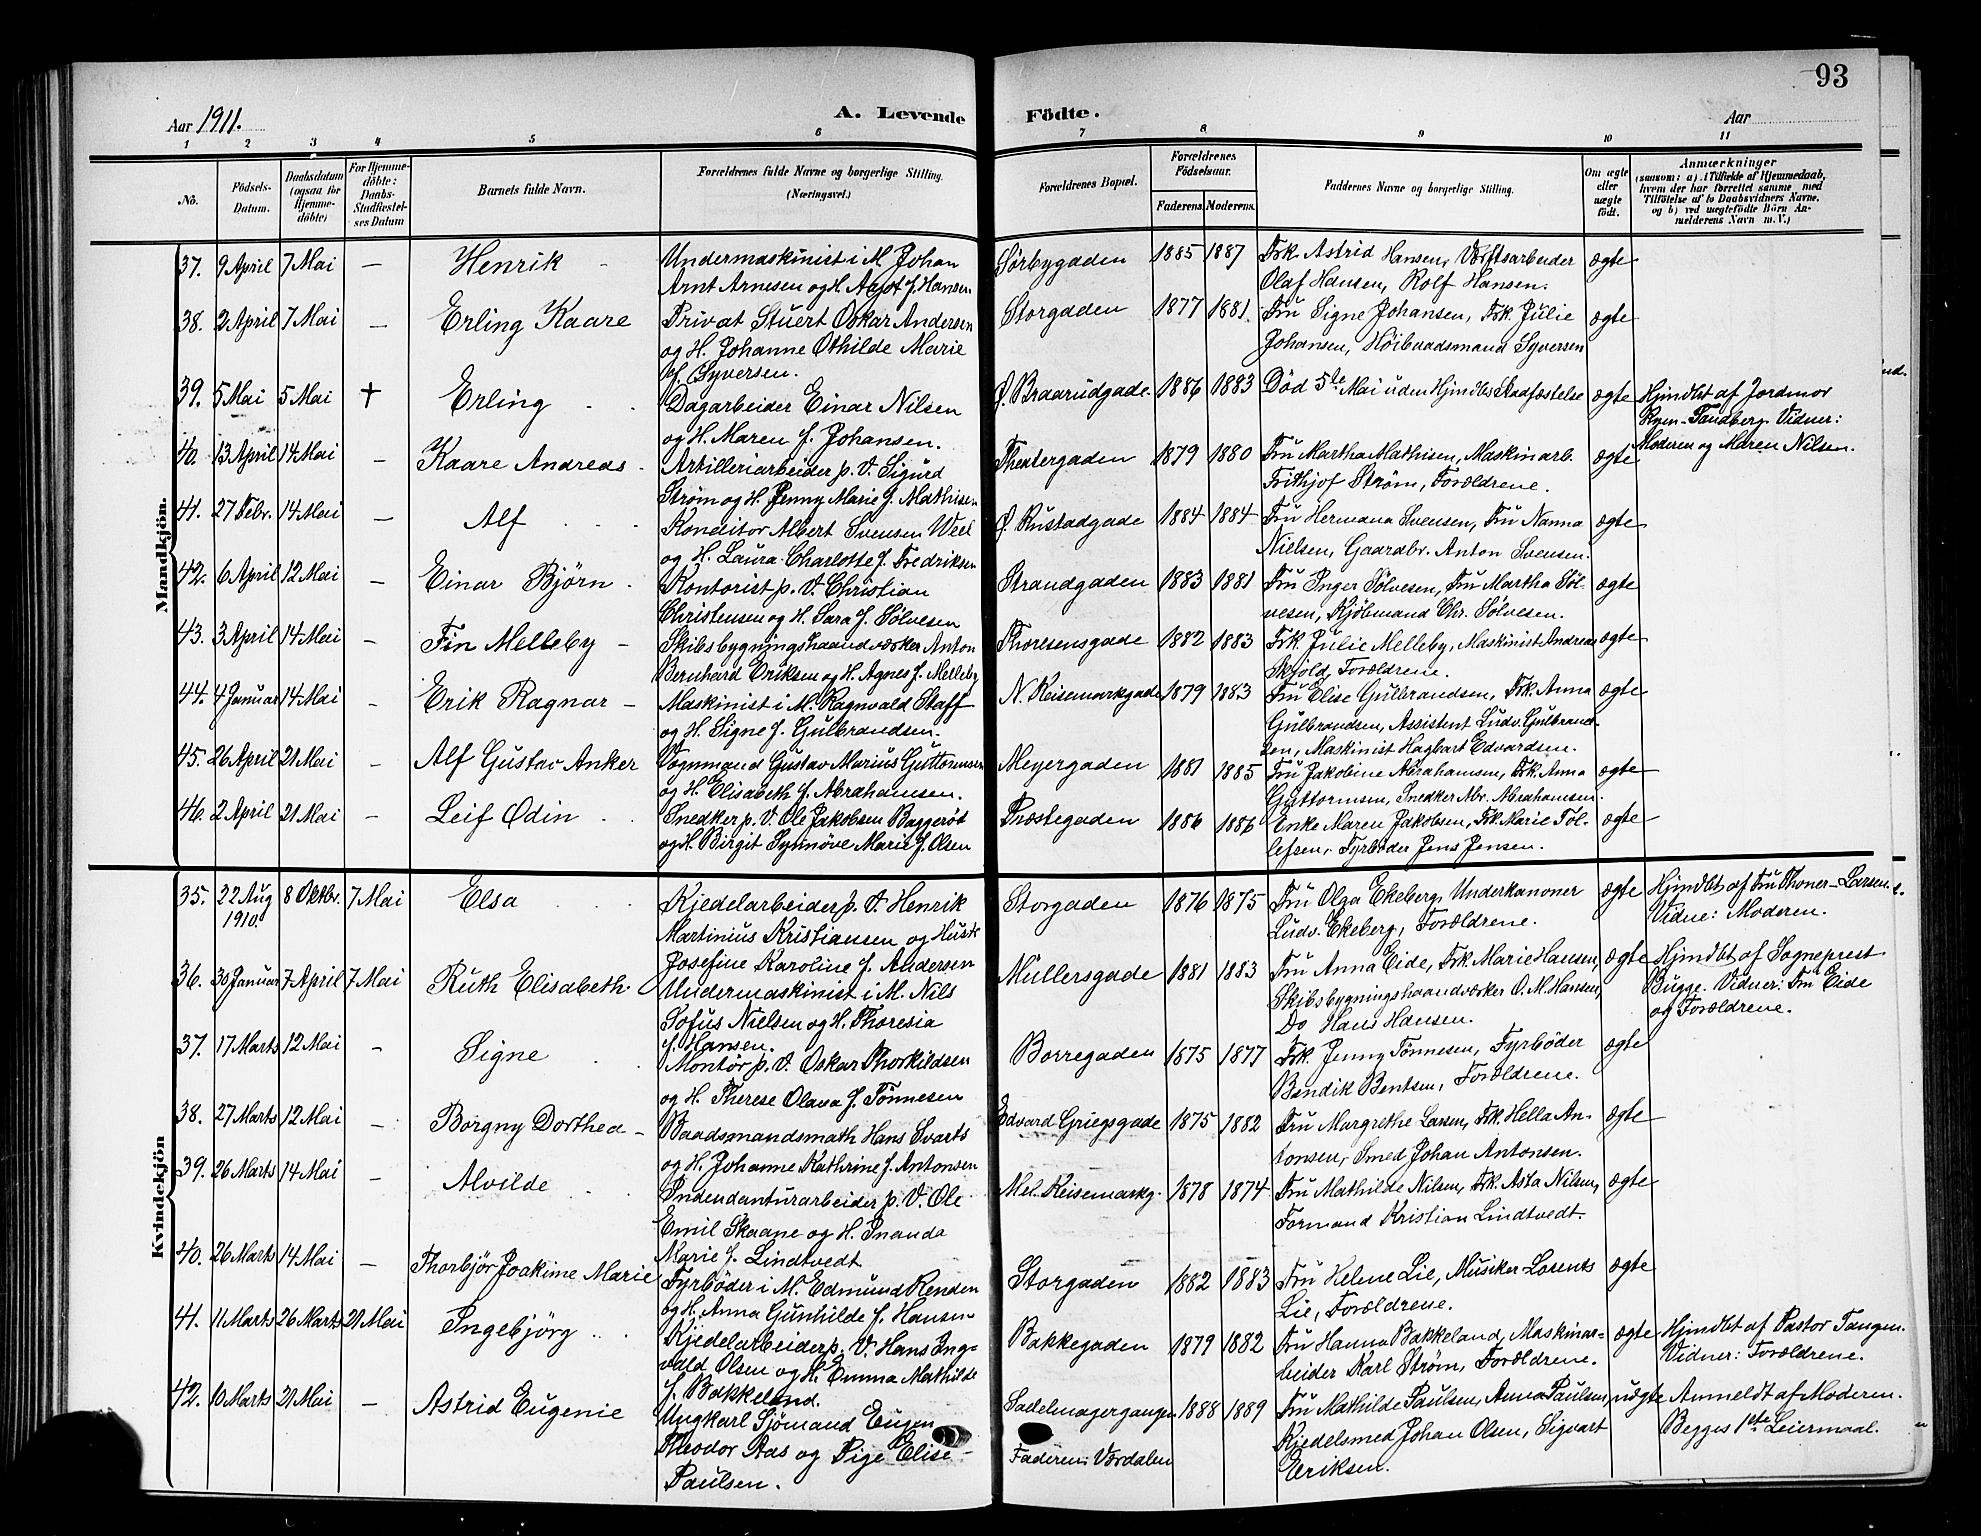 93
Aar 1911.
A. Levende Födte.
Aar
1 2 3 4 5 6 7 8 9 10 11
No.
Födsels-Datum.
Daabsdatum (ogsaa for Hjemme-döbte)
For Hjemme-döbte: Daabs-Stadfæstel-ses Datum
Barnets fulde Navn.
Forældrenes fulde Navne og borgerlige Stilling. (Næringsvei.)
Forældrenes Bopæl.
Forældrenes Födselsaar.
Faderens. Moderens.
Faddernes Navne og borgerlige Stilling.
Om ægte eller uægte födt.
Anmærkninger
(saasom: a) i Tilfælde af Hjemmedaab,
hvem der har forrettet samme med
Tilföielse af to Daabsvidners Navne,
og b) ved uægtefödte Börn An-
melderens Navn m. V.)
Mandkjön.
37. 9 April 7 Mai — Henrik - Undermaskinist i M. Johan Sørbygaden 1885 1887 Frk. Astrid Hansen, Værftsarbeider ægte
Arnt Arnesen og H. Agot f. Hansen Olaf Hansen, Rolf Hansen.
38. 2 April 7 Mai — Erling Kaare Privat Stuert Oskar Andersen Storgaden 1877 1881 Fru Signe Johansen, Frk. Julie ægte
og H. Johanne Othilde Marie Johansen, Høibaadsmand Syversen
f. Syversen.
39. 5 Mai 5 Mai † Erling Dagarbeider Einar Nilsen Ø. Braarudgade 1886 1883 Død 5te Mai uden Hjmdbs Stadfæstelse ægte Hjmdbt af Jordmor
og H. Maren f. Johansen. Ryen-Tandberg. Vidner:
Moderen og Maren Nilsen.
40. 13 April 14 Mai — Kaare Andreas Artilleriarbeider p. V. Sigurd Theatergaden 1879 1880 Fru Martha Mathisen, Maskinarb. ægte
Strøm og H. Jenny Marie f. Mathisen Frithjof Strøm, Forældrene.
41. 27 Febr. 14 Mai — Alf Konditor Albert Svensen Weel Ø. Rustadgade 1884 1884 Fru Hermana Svensen, Fru Nanna ægte
og H. Laura Charlotte f. Fredriksen Nielsen, Gaardbr. Anton Svensen.
42. 6 April 12 Mai — Einar Bjørn Kontorist p. V. Christian Strandgaden 1883 1881 Fru Inger Sølvesen, Fru Martha Søl- ægte
Christensen og H. Sara f. Sølvesen vesen, Kjøbmand Chr. Sølvesen.
43. 3 April 14 Mai — Fin Melleby Skibsbygningshaandværker Anton Thoresensgade 1882 1883 Frk. Julie Melleby, Maskinist Andreas ægte
Bernhard Eriksen og H. Agnes f. Melleby Skjold, Forældrene.
44. 4 Januar 14 Mai — Erik Ragnar Maskinist i M. Ragnvald Staff N. Keisemarksgade 1879 1883 Fru Elise Gulbrandsen, Frk. Anna ægte
og H. Signe f. Gulbrandsen. Gulbrandsen, Assistent Ludv. Gulbrand-
sen, Maskinist Hagbart Edvardsen.
45. 26 April 21 Mai — Alf Gustav Anker Vognmand Gustav Marius Guttormsen Meyergaden 1881 1885 Fru Jakobine Abrahamsen, Frk. Anna ægte
og H. Elisabeth f. Abrahamsen. Guttormsen, Snedker Abr. Abrahamsen.
46. 2 April 21 Mai — Leif Odin Snedker p. V. Ole Jakobsen Baggerøt Præstegaden 1886 1886 Enke Maren Jakobsen, Frk. Marie Tøl- ægte
og H. Birgit Synnøve Marie f. Olsen lefsen, Fyrbøder Jens Jensen.
Kvindekjön
35. 22 Aug 1910. 8 Oktbr. 7 Mai Elsa Kjedelarbeider p. V. Henrik Storgaden 1876 1875 Fru Olga Ekeberg, Underkanoner ægte Hjmdbt af Fru Thoner-Larsen.
Martinius Kristiansen og Hustr. Ludv. Ekeberg, Forældrene. Vidne: Moderen.
Josefine Karoline f. Andersen
36. 30 Januar 7 April 7 Mai Ruth Elisabeth Undermaskinist i M. Nils Müllersgade 1881 1883 Fru Anna Eide, Frk. Marie Hansen, ægte Hjmdbt af Sogneprest
Sofus Nielsen og H. Thoresia Skibsbygningshaandværker O. M. Hansen, Bugge. Vidner: Fru Eide
f. Hansen. Do Hans Hansen. og Forældrene.
37. 17 Marts 12 Mai — Signe Montør p. V. Oskar Thorkildsen Borregaden 1875 1877 Frk. Jenny Tønnesen, Fyrbøder ægte
og H. Therese Olava f. Tønnesen Bendik Bentsen, Forældrene.
38. 27 Marts 12 Mai — Borgny Dorthea Baadsmandsmath Hans Svarts Edvard Griegsgade 1875 1882 Fru Margrethe Larsen, Frk. Hella An- ægte
og H. Johanne Kathrine f. Antonsen tonsen, Smed Johan Antonsen.
39. 26 Marts 14 Mai — Alvilde Indendanturarbeider p. V. Ole Mel. Keisemarkg. 1878 1874 Fru Mathilde Nilsen, Frk. Asta Nilsen, ægte
Emil Skaane og H. Inanda Formand Kristian Lindtvedt.
Marie f. Lindtvedt
40. 26 Marts 14 Mai — Thorbjør Joakime Marie Fyrbøder i M. Edmund Renden Storgaden 1882 1883 Fru Helene Lie, Musiker Lorents ægte
og H. Anna Gunhilde f. Hansen Lie, Forældrene.
41. 11 Marts 26 Marts 21 Mai Ingebjörg Kjedelarbeider p. V. Hans Ing- Bakkegaden 1879 1882 Fru Hanna Bakkeland, Maskinar- ægte Hjmdbt af Pastor Tangen.
vald Olsen og H. Emma Mathilde beider Karl Strøm, Forældrene. Vidner: Forældrene.
f. Bakkeland.
42. 10 Marts 21 Mai — Astrid Eugenie Ungkarl Sjømand Eugen Sadelmagergangen 1888 1889 Fru Mathilde Paulsen, Anna Paulsen, uægte Anmeldt af Moderen.
Theodor Aas og Pige Elise Faderen: Værdalen Kjedelsmed Johan Olsen, Sigvart Begges 1ste Leiermaal.
Paulsen. Eriksen.